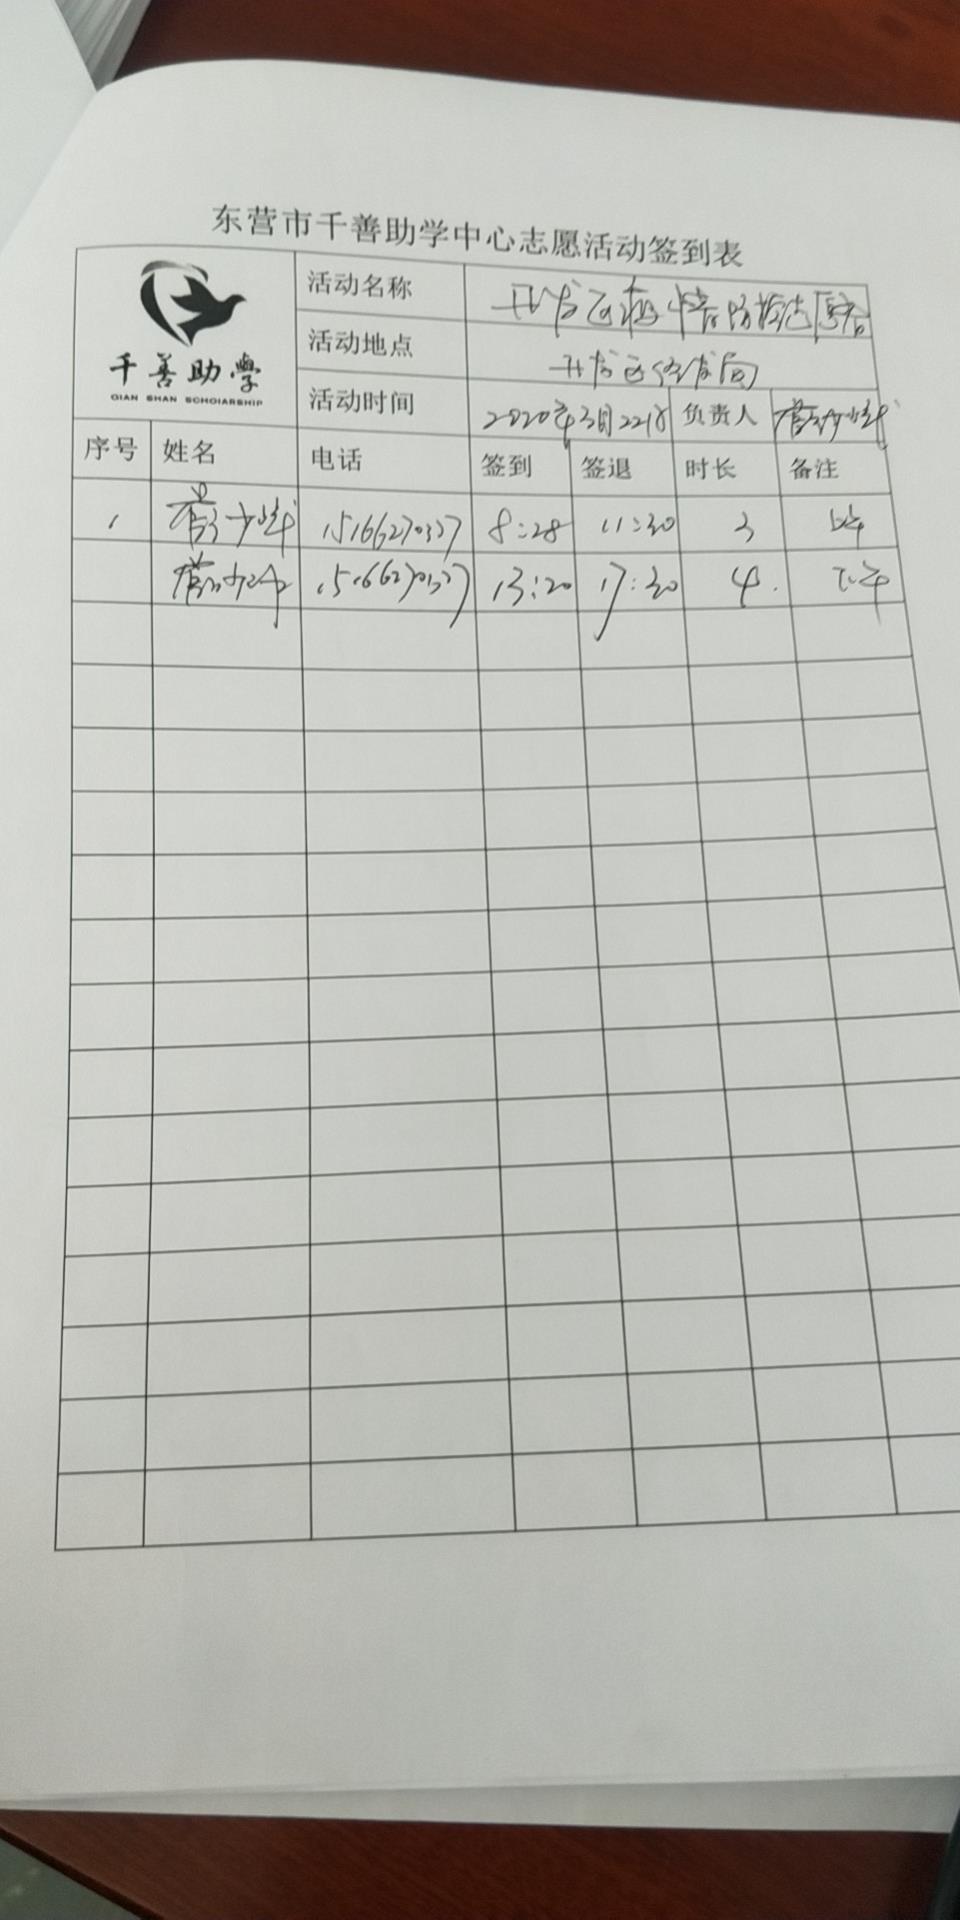 东营市千善助学中心志愿活动签到表
千善助學
QIAN SHAN SCHOIARSHIP
活动名称 开发区疫情防控志愿者
活动地点 开发区经发局
活动时间 2020年3月22日 负责人
序号 姓名 电话 签到 签退 时长 备注
1 15166270327 8:28 11:30 3 上午
15166270327 13:20 17:30 4. 下午